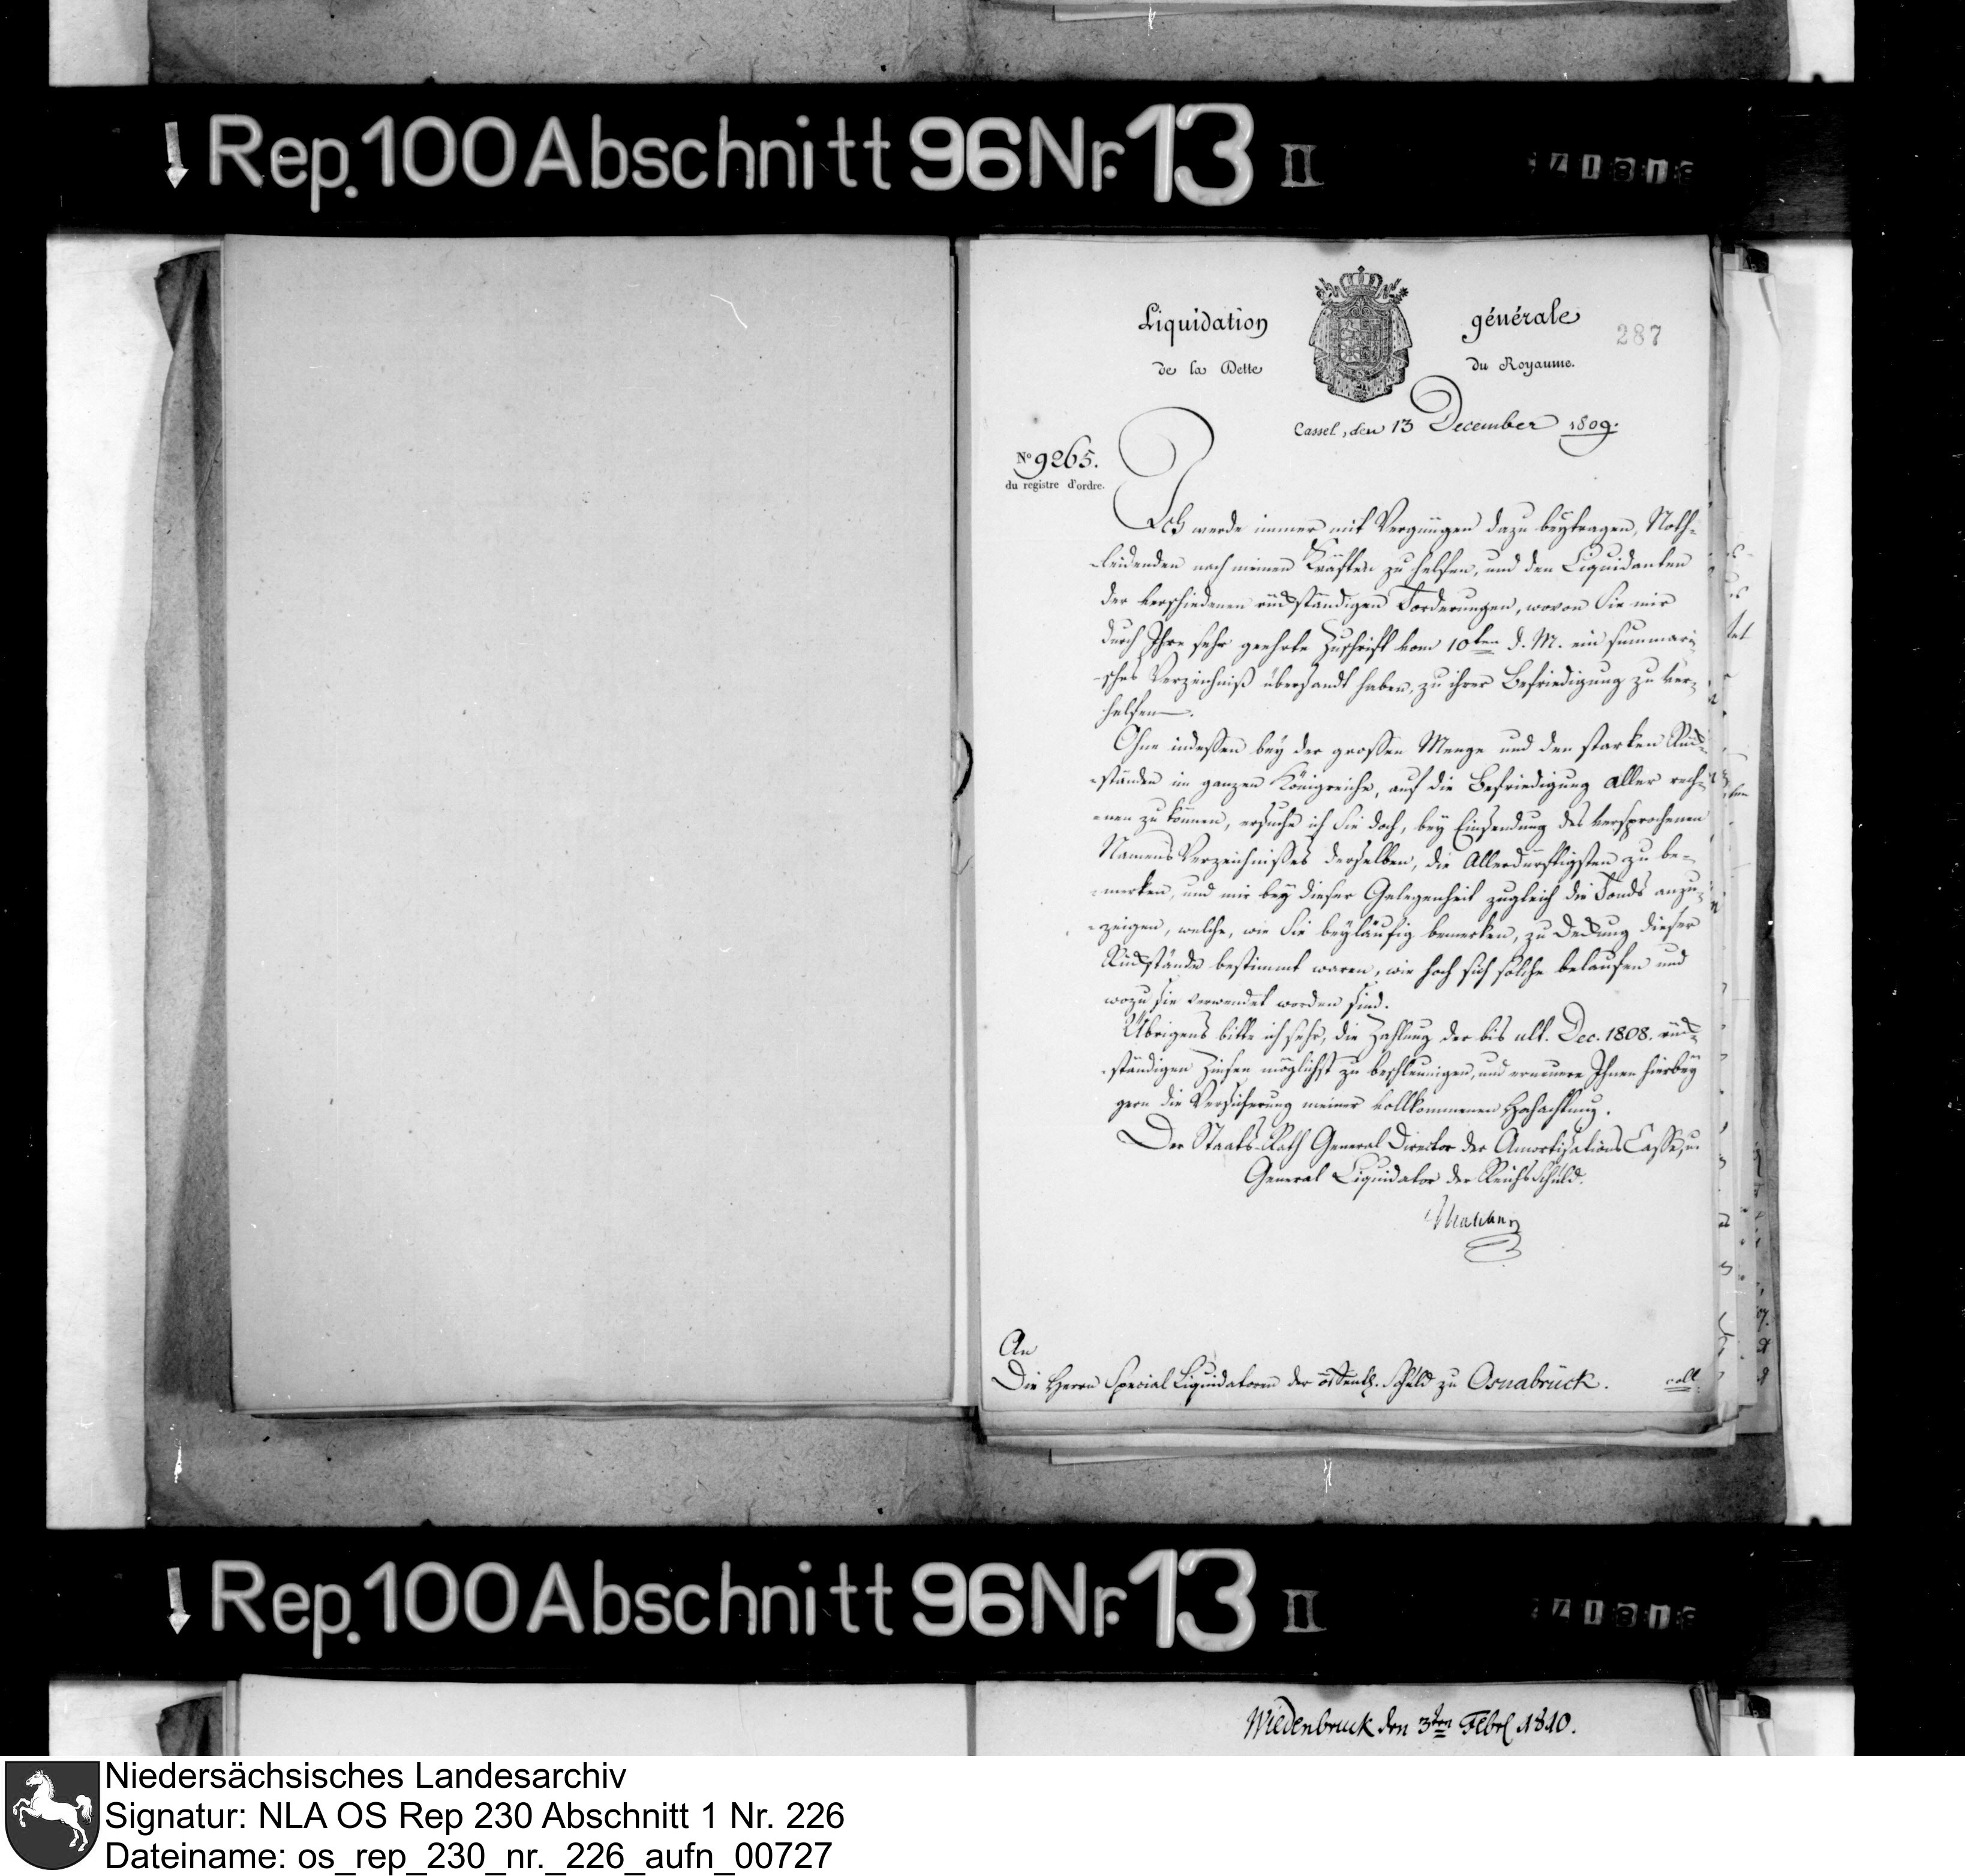 Rep. 100 Abschnitt 96 Nr. 13 II
Liquidation générale
287
de la Dette du Royaume.
Cassel, den 13 December 1809.
No 9265.
du registre d'ordre.
Ich werde immer mit Vergnügen dazu beytragen, Noth-
-leidenden nach meinen Kräften zu helfen, und den Liquidanten
der verschiedenen rückständigen Forderungen, wovon Sie mir
durch Ihre sehr geehrte Zuschrift vom 10ten d. M. ein summari-
-sches Verzeichniß übersandt haben, zu ihrer Befriedigung zu ver-
helfen.
Ohne indessen bey der grossen Menge und den starken Rück-
-ständen im ganzen Königreiche, auf die Befriedigung aller rech-
-nen zu können, ersuche ich Sie doch, bey Einsendung des versprochenen
Namens Verzeichnisses derselben, die Allerdürftigsten zu be-
-merken, und mir bey dieser Gelegenheit zugleich die Fonds anzu-
-zeigen, welche, wie Sie beyläufig bemerken, zu Deckung dieser
Rückstände bestimmt waren, wie hoch sich solche belaufen und
wozu sie verwendet worden sind.
Übrigens bitte ich sehr, die Zahlung der bis ult. Dec. 1808. rück-
-ständigen Zinsen möglichst zu beschleunigen, und erneuere Ihnen hierbey
gern die Versicherung meiner vollkommenen Hochachtung.
Der Staats-Rath General Director der Amortisations Casse, u.
General Liquidator der Reichs Schuld.
An
Die Herrn Special Liquidatoren der öffentl. Schuld zu Osnabrück.
Rep. 100 Abschnitt 96 Nr. 13 II
Wiedenbruck den 3ten Febr 1810.
Niedersächsisches Landesarchiv
Signatur: NLA OS Rep 230 Abschnitt 1 Nr. 226
Dateiname: os_rep_230_nr._226_aufn_00727